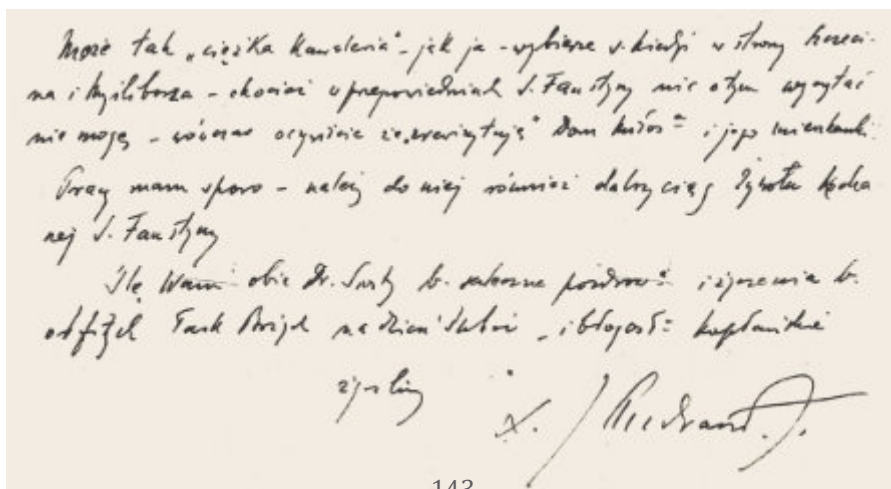 Może tak „ciężka Kawaleria" – jak ja – wybierze s. kiedyś w strony Szczeci-
na i Myśliborza – chociaż w przepowiedniach S. Faustyny nic o tym wyczytać
nie mogę – wówczas oczywiście że „zwizytują" Dom Miłos= i jego mieszkanki.
Pracy mam sporo – należy do niej również dalszy ciąg Żywota Kocha
nej S. Faustyny
Ślę Wam obie Dr. Siostry b. serdeczne pozdrow= i życzenia b.
obfitych Łask Bożych na dzień Ślubów – i błogosł= kapłańskie
życzliwy
X.
143